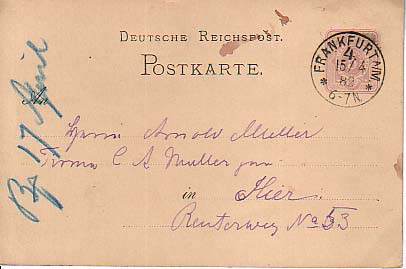 DEUTSCHE REICHSPOST.
POSTKARTE.
FRANKFURT A/M.
4
15/4
89
6-7N
An
Herrn Arnold Müller
Firma C A Müller jun
in Hier
Reuterweg No 53
17 April